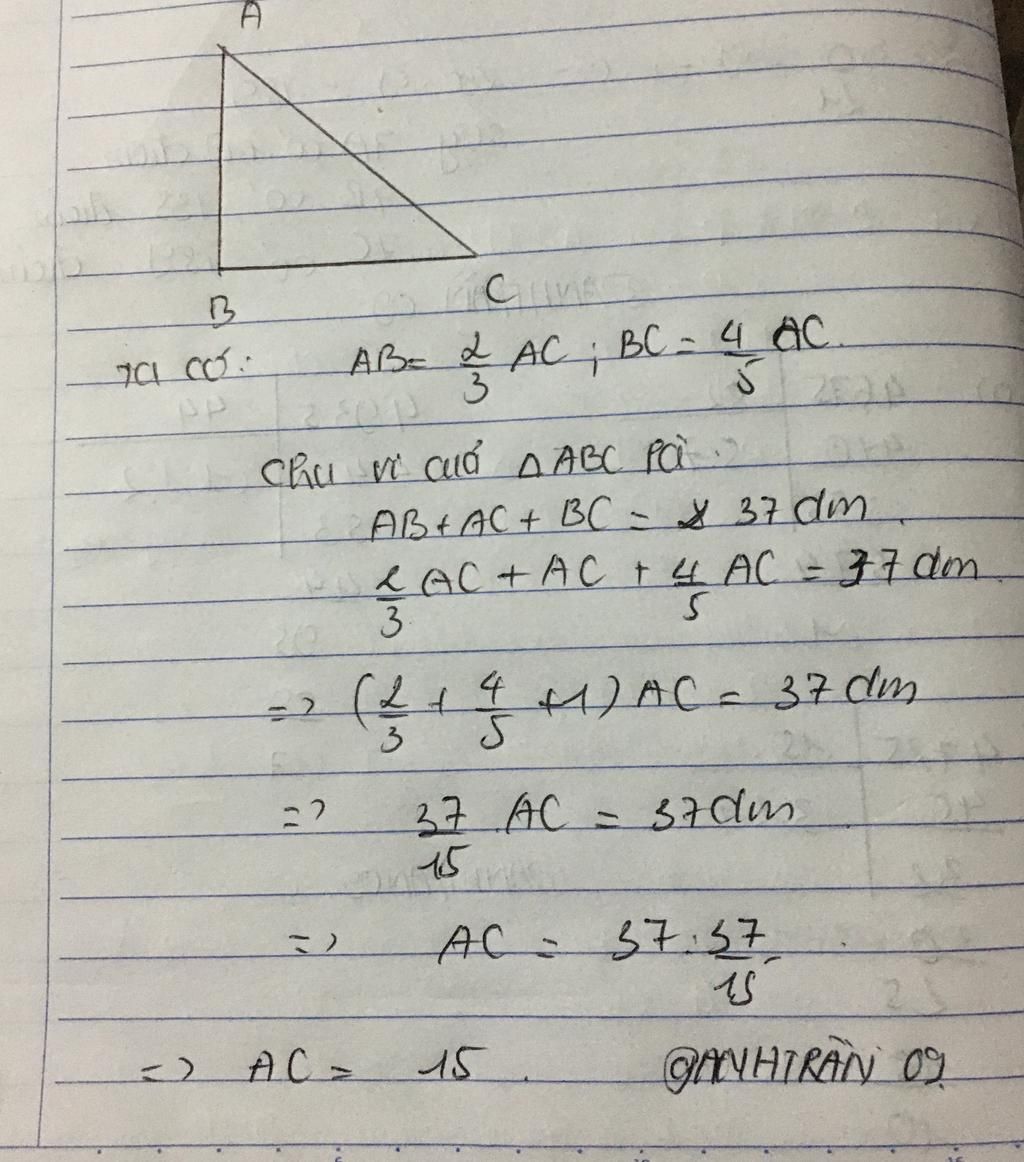 A
B
C
Ta có: AB = 2/3 AC ; BC = 4/5 AC.
Chu vi cuả △ABC là:
AB + AC + BC = 37 dm.
2/3 AC + AC + 4/5 AC = 37 dm.
=> (2/3 + 4/5 + 1) AC = 37 dm
=> 37/15 . AC = 37 dm.
=> AC = 37 : 37/15.
=> AC = 15. @ANHTRẦN 09